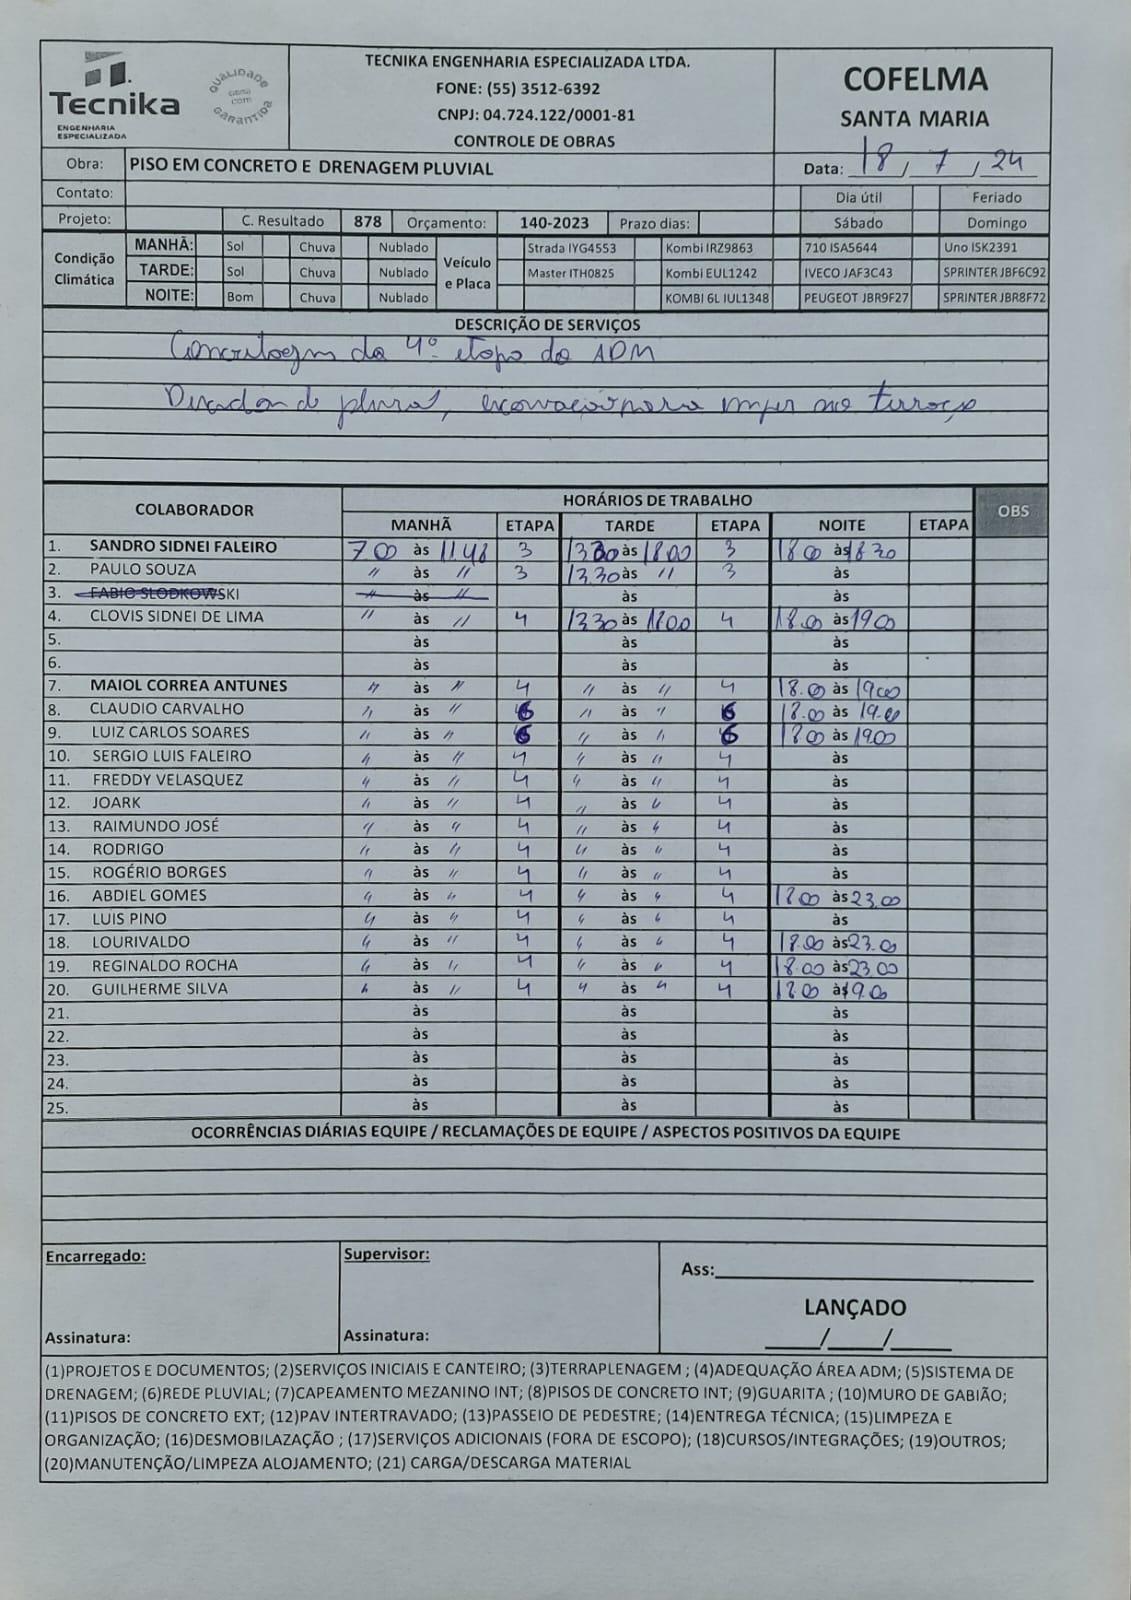 Tecnika
ENGENHARIA
ESPECIALIZADA
QUALIDADE
com
GARANTIDA
TECNIKA ENGENHARIA ESPECIALIZADA LTDA.
FONE: (55) 3512-6392
CNPJ: 04.724.122/0001-81
CONTROLE DE OBRAS
COFELMA
SANTA MARIA
Obra: PISO EM CONCRETO E DRENAGEM PLUVIAL
Data: 18/7/24
Contato: Dia útil Feriado
Projeto: C. Resultado 878 Orçamento: 140-2023 Prazo dias: Sábado Domingo
Condição Climática
MANHÃ: Sol Chuva Nublado
TARDE: Sol Chuva Nublado
NOITE: Bom Chuva Nublado
Veículo e Placa
Strada IYG4553 Kombi IRZ9863 710 ISA5644 Uno ISK2391
Master ITH0825 Kombi EUL1242 IVECO JAF3C43 SPRINTER JBF6C92
KOMBI 6L IUL1348 PEUGEOT JBR9F27 SPRINTER JBR8F72
DESCRIÇÃO DE SERVIÇOS
Concretagem da 4º etapa do ADM
pluvial, escavação para no terraço
COLABORADOR HORÁRIOS DE TRABALHO OBS
MANHÃ ETAPA TARDE ETAPA NOITE ETAPA
1. SANDRO SIDNEI FALEIRO 7.00 às 11.48 3 13.30 às 18.00 3 18.00 às 18.30
2. PAULO SOUZA " às " 3 13.30 às " 3 às
3. FABIO SLODKOWSKI " às " às às
4. CLOVIS SIDNEI DE LIMA " às " 4 13.30 às 18.00 4 18.00 às 19.00
5. às às às
6. às às às
7. MAIOL CORREA ANTUNES " às " 4 " às " 4 18.00 às 19.00
8. CLAUDIO CARVALHO " às " 6 " às " 6 18.00 às 19.00
9. LUIZ CARLOS SOARES " às " 6 " às " 6 18.00 às 19.00
10. SERGIO LUIS FALEIRO " às " 4 " às " 4 às
11. FREDDY VELASQUEZ " às " 4 " às " 4 às
12. JOARK " às " 4 " às " 4 às
13. RAIMUNDO JOSÉ " às " 4 " às " 4 às
14. RODRIGO " às " 4 " às " 4 às
15. ROGÉRIO BORGES " às " 4 " às " 4 às
16. ABDIEL GOMES " às " 4 " às " 4 18.00 às 23.00
17. LUIS PINO " às " 4 " às " 4 às
18. LOURIVALDO " às " 4 " às " 4 18.00 às 23.00
19. REGINALDO ROCHA " às " 4 " às " 4 18.00 às 23.00
20. GUILHERME SILVA " às " 4 " às " 4 18.00 às 19.00
21. às às às
22. às às às
23. às às às
24. às às às
25. às às às
OCORRÊNCIAS DIÁRIAS EQUIPE / RECLAMAÇÕES DE EQUIPE / ASPECTOS POSITIVOS DA EQUIPE
Encarregado: Supervisor: Ass:
LANÇADO
Assinatura: Assinatura: / /
(1)PROJETOS E DOCUMENTOS; (2)SERVIÇOS INICIAIS E CANTEIRO; (3)TERRAPLENAGEM ; (4)ADEQUAÇÃO ÁREA ADM; (5)SISTEMA DE
DRENAGEM; (6)REDE PLUVIAL; (7)CAPEAMENTO MEZANINO INT; (8)PISOS DE CONCRETO INT; (9)GUARITA ; (10)MURO DE GABIÃO;
(11)PISOS DE CONCRETO EXT; (12)PAV INTERTRAVADO; (13)PASSEIO DE PEDESTRE; (14)ENTREGA TÉCNICA; (15)LIMPEZA E
ORGANIZAÇÃO; (16)DESMOBILAZAÇÃO ; (17)SERVIÇOS ADICIONAIS (FORA DE ESCOPO); (18)CURSOS/INTEGRAÇÕES; (19)OUTROS;
(20)MANUTENÇÃO/LIMPEZA ALOJAMENTO; (21) CARGA/DESCARGA MATERIAL